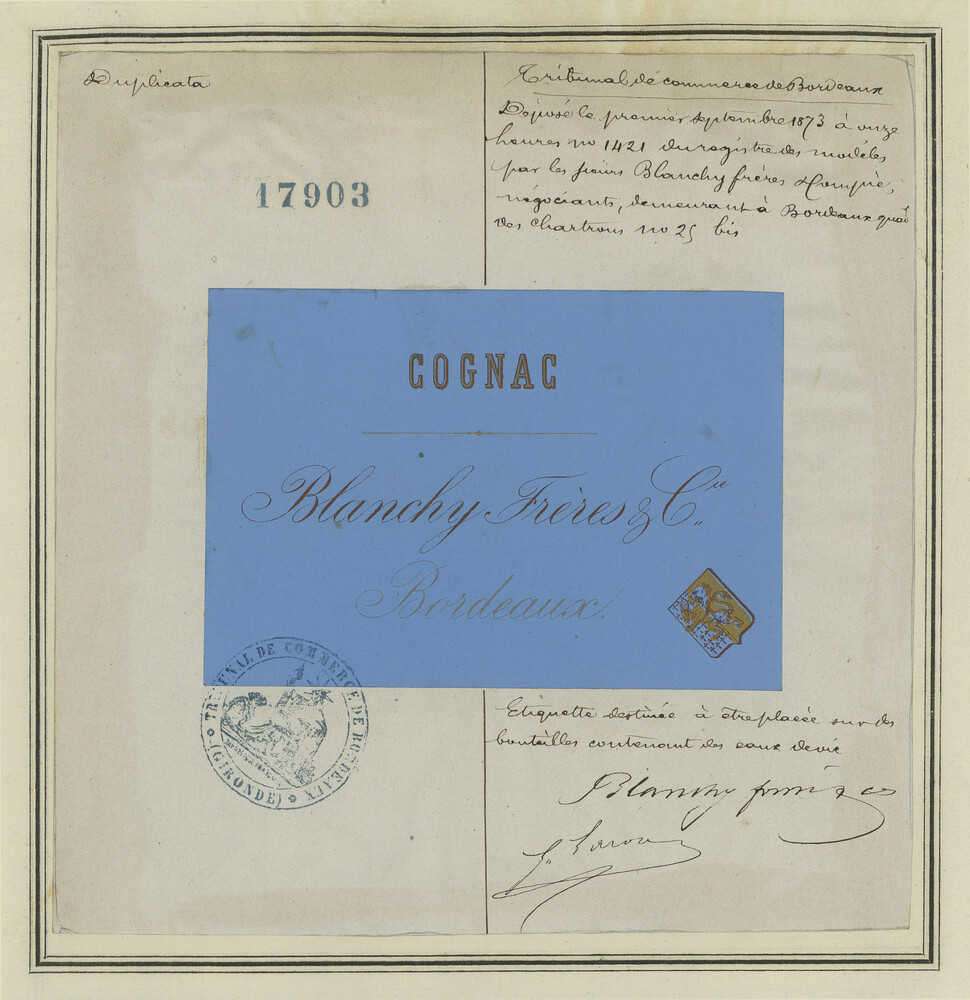 Duplicata
17903
Tribunal de commerce de Bordeaux
Déposé le premier septembre 1873 à onze
heures no 1421 du registre des modèles
par les sieurs Blanchy frères & Compie,
négociants, demeurant à Bordeaux quai
des Chartrons no 25 bis
COGNAC
Blanchy Frères & Cie
Bordeaux.
TRIBUNAL DE COMMERCE DE BORDEAUX
(GIRONDE)
Etiquette destinée à être placée sur des
bouteilles contenant des eaux de vie
Blanchy